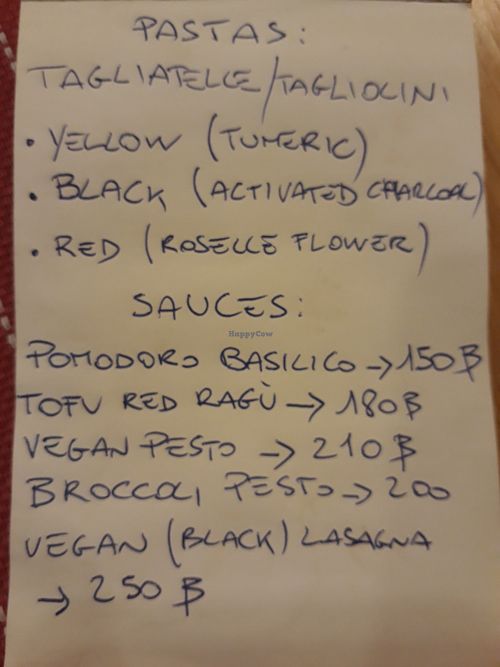 PASTAS:
TAGLIATELLE/TAGLIOLINI
• YELLOW (TUMERIC)
• BLACK (ACTIVATED CHARCOAL)
• RED (ROSELLE FLOWER)
SAUCES:
HappyCow
POMODORO BASILICO → 150 ฿
TOFU RED RAGÙ → 180 ฿
VEGAN PESTO → 210 ฿
BROCCOLI PESTO → 200
VEGAN (BLACK) LASAGNA
→ 250 ฿